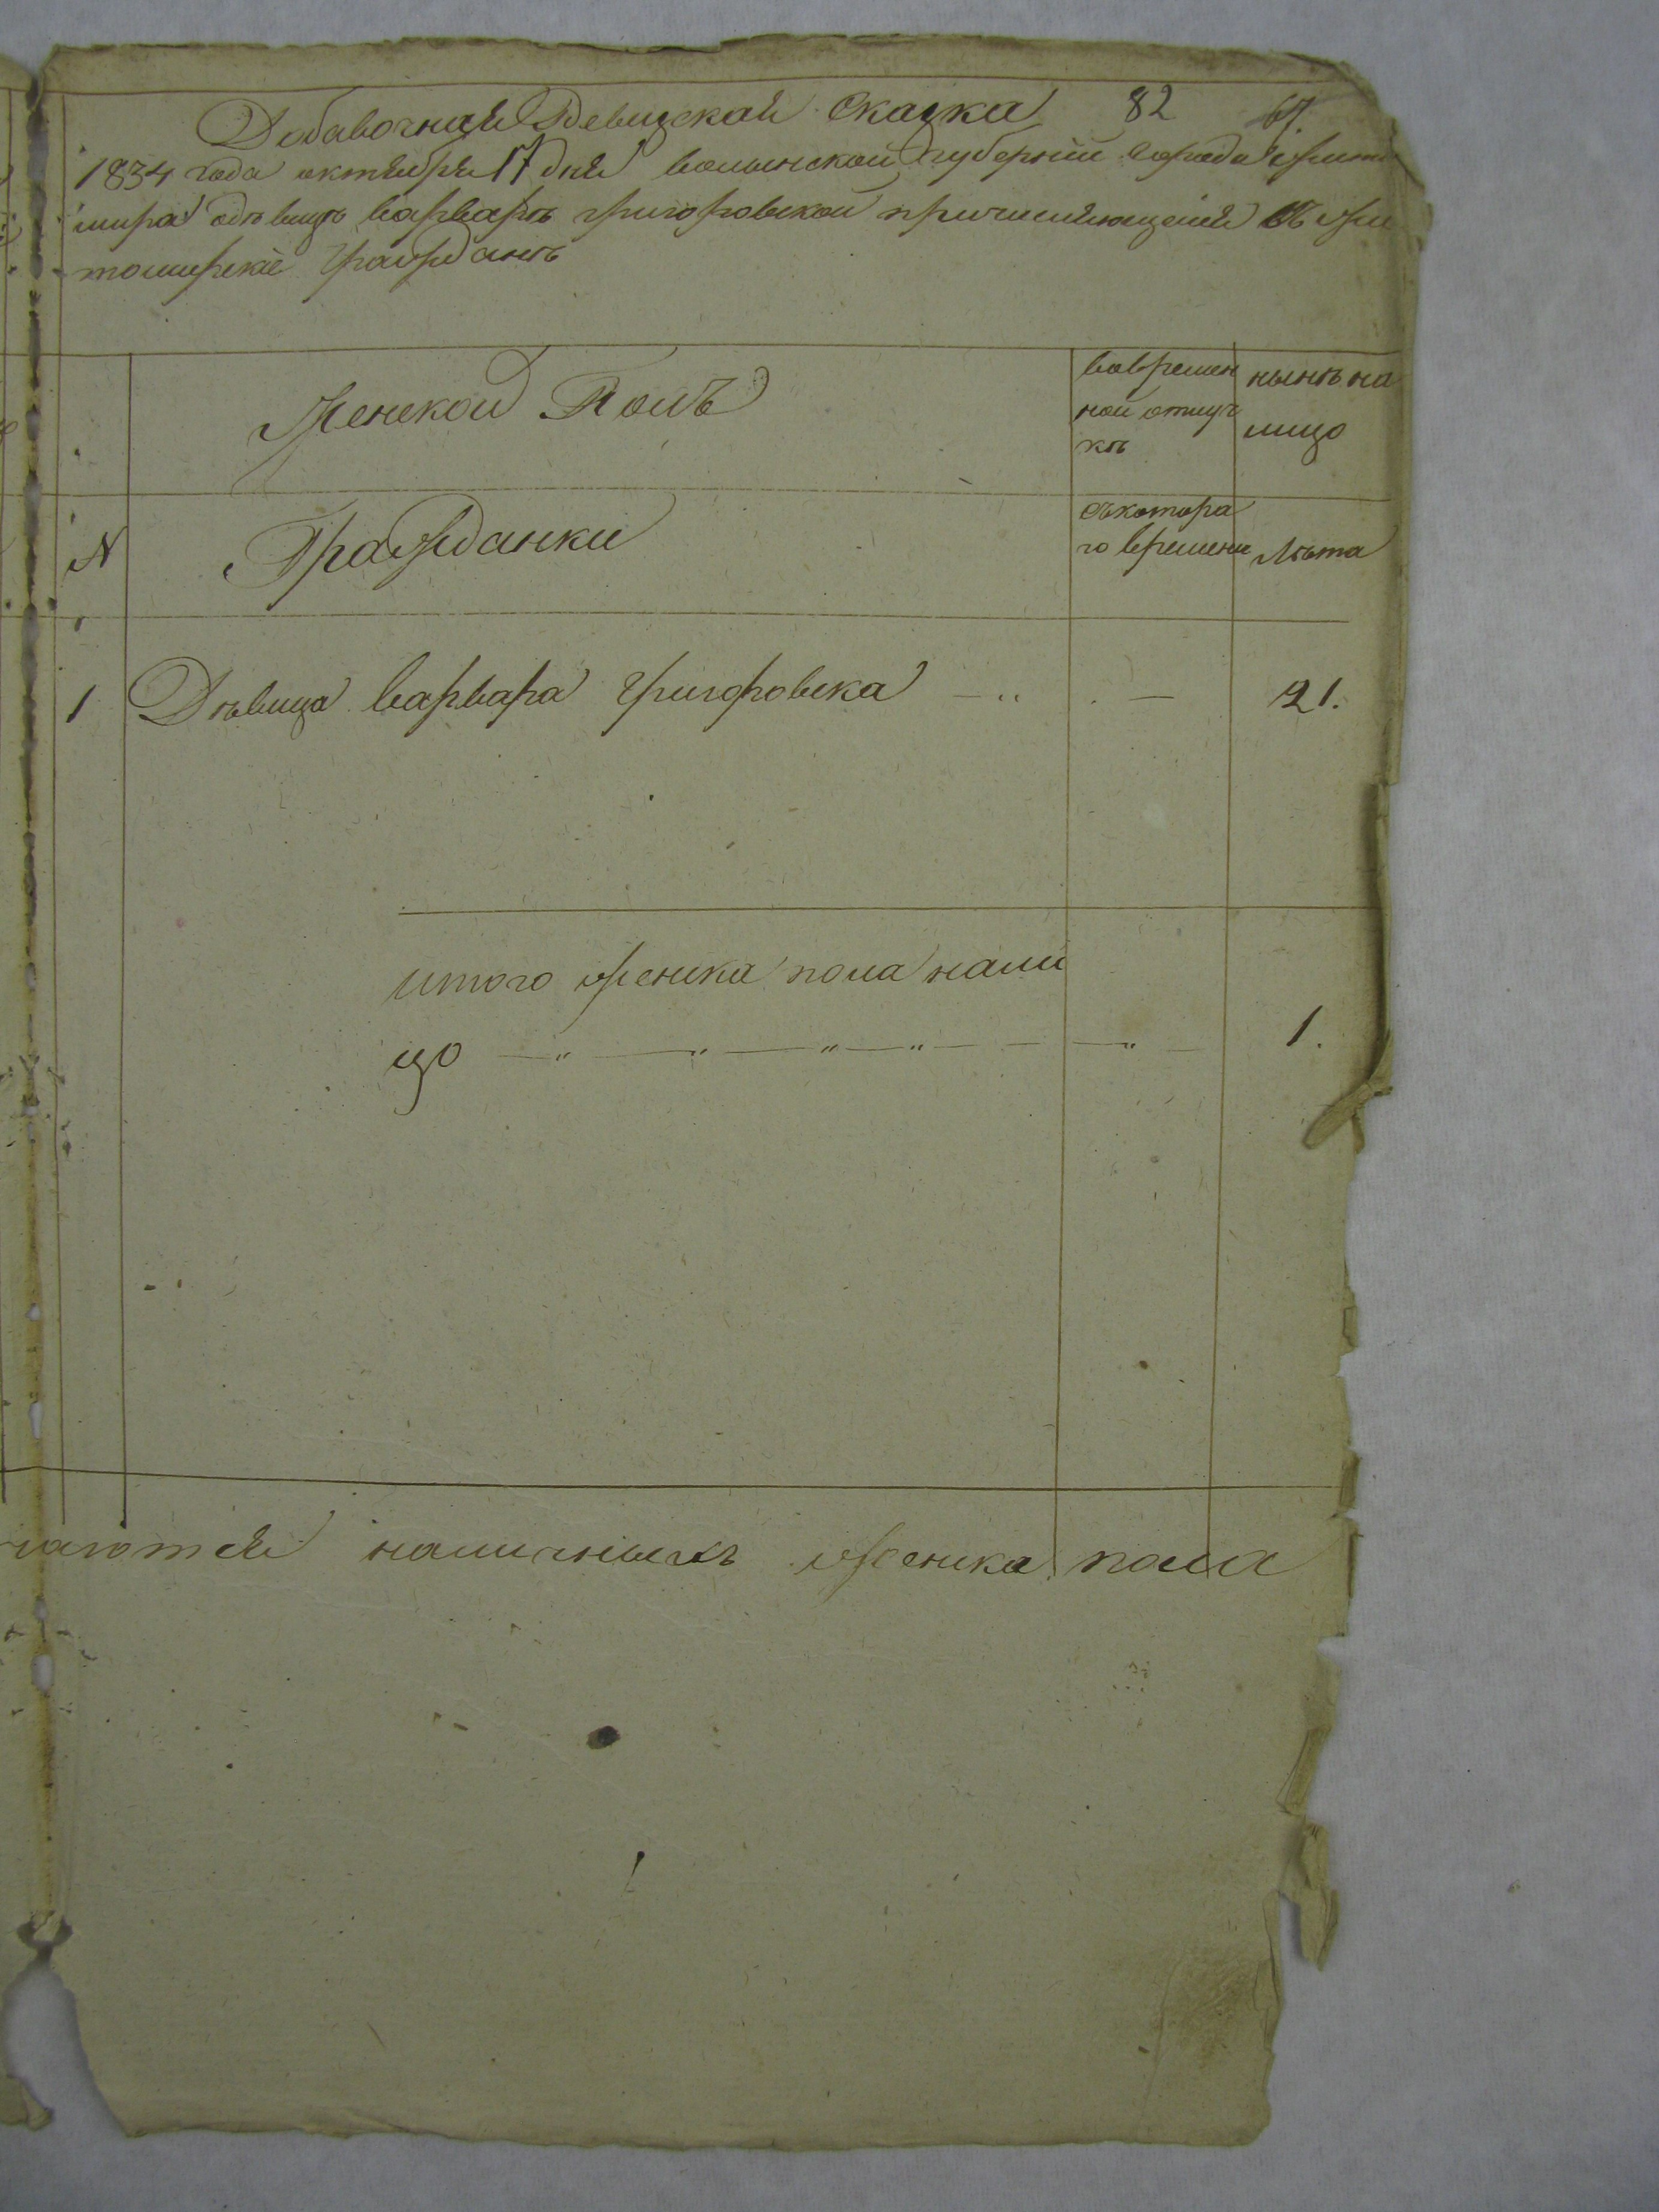 Добавочная Ревизская Сказка 82 67.
1834 года октября 17 дня волынской губернии города жито
мира одѣвицѣ варварѣ григоровской причисляющейся въ жи
томирскіе граждане
Женской Полъ
вовремен
ной отлуч
кѣ
нынѣ на
лицо
N
Гражданки
съкотора
го времени
Лѣта
1 Дѣвица варвара григоровска — — 21.
итого женска пола нали
цо — " — " — " — " — — " — 1.
чаются наличныхъ женска пола